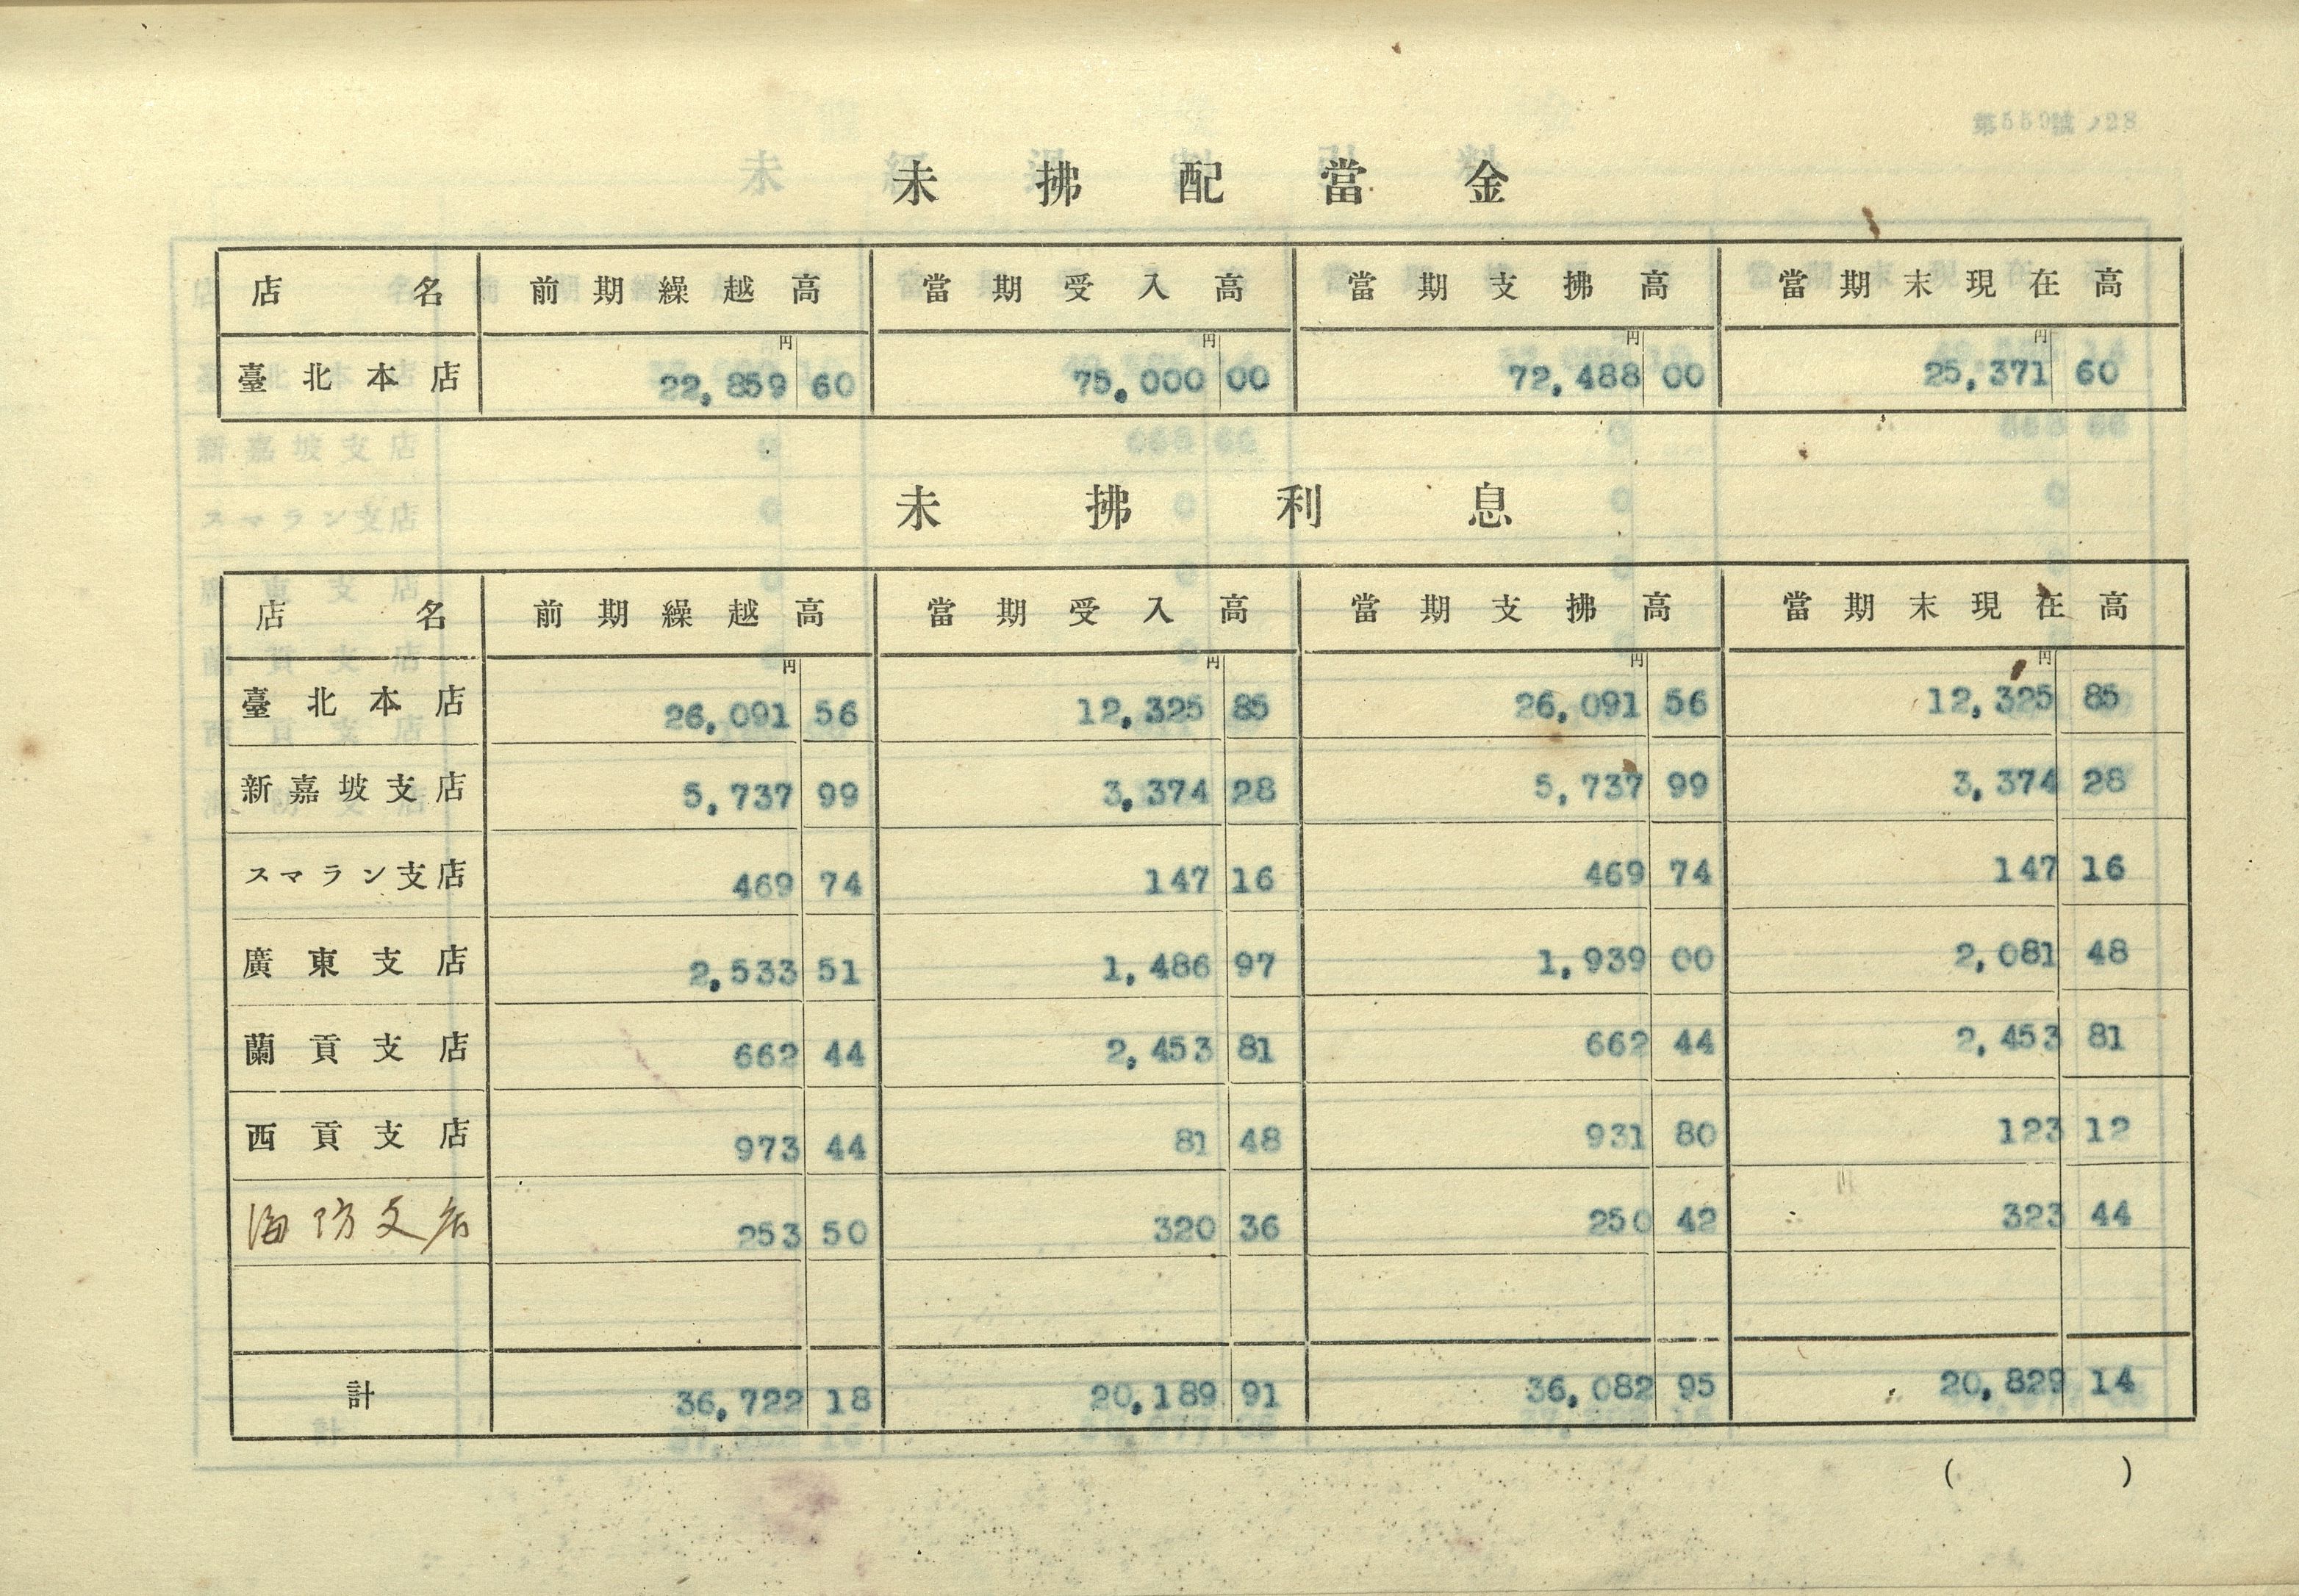 第559號ノ28
未拂配當金
店名 前期繰越高 當期受入高 當期支拂高 當期末現在高
円 円 円 円
臺北本店 22,859 60 75,000 00 72,488 00 25,371 60
未拂利息
店名 前期繰越高 當期受入高 當期支拂高 當期末現在高
円 円 円 円
臺北本店 26,091 56 12,325 85 26,091 56 12,325 85
新嘉坡支店 5,737 99 3,374 28 5,737 99 3,374 28
スマラン支店 469 74 147 16 469 74 147 16
廣東支店 2,533 51 1,486 97 1,939 00 2,081 48
蘭貢支店 662 44 2,453 81 662 44 2,453 81
西貢支店 973 44 81 48 931 80 123 12
海防支店 253 50 320 36 250 42 323 44
計 36,722 18 20,189 91 36,082 95 20,829 14
( )